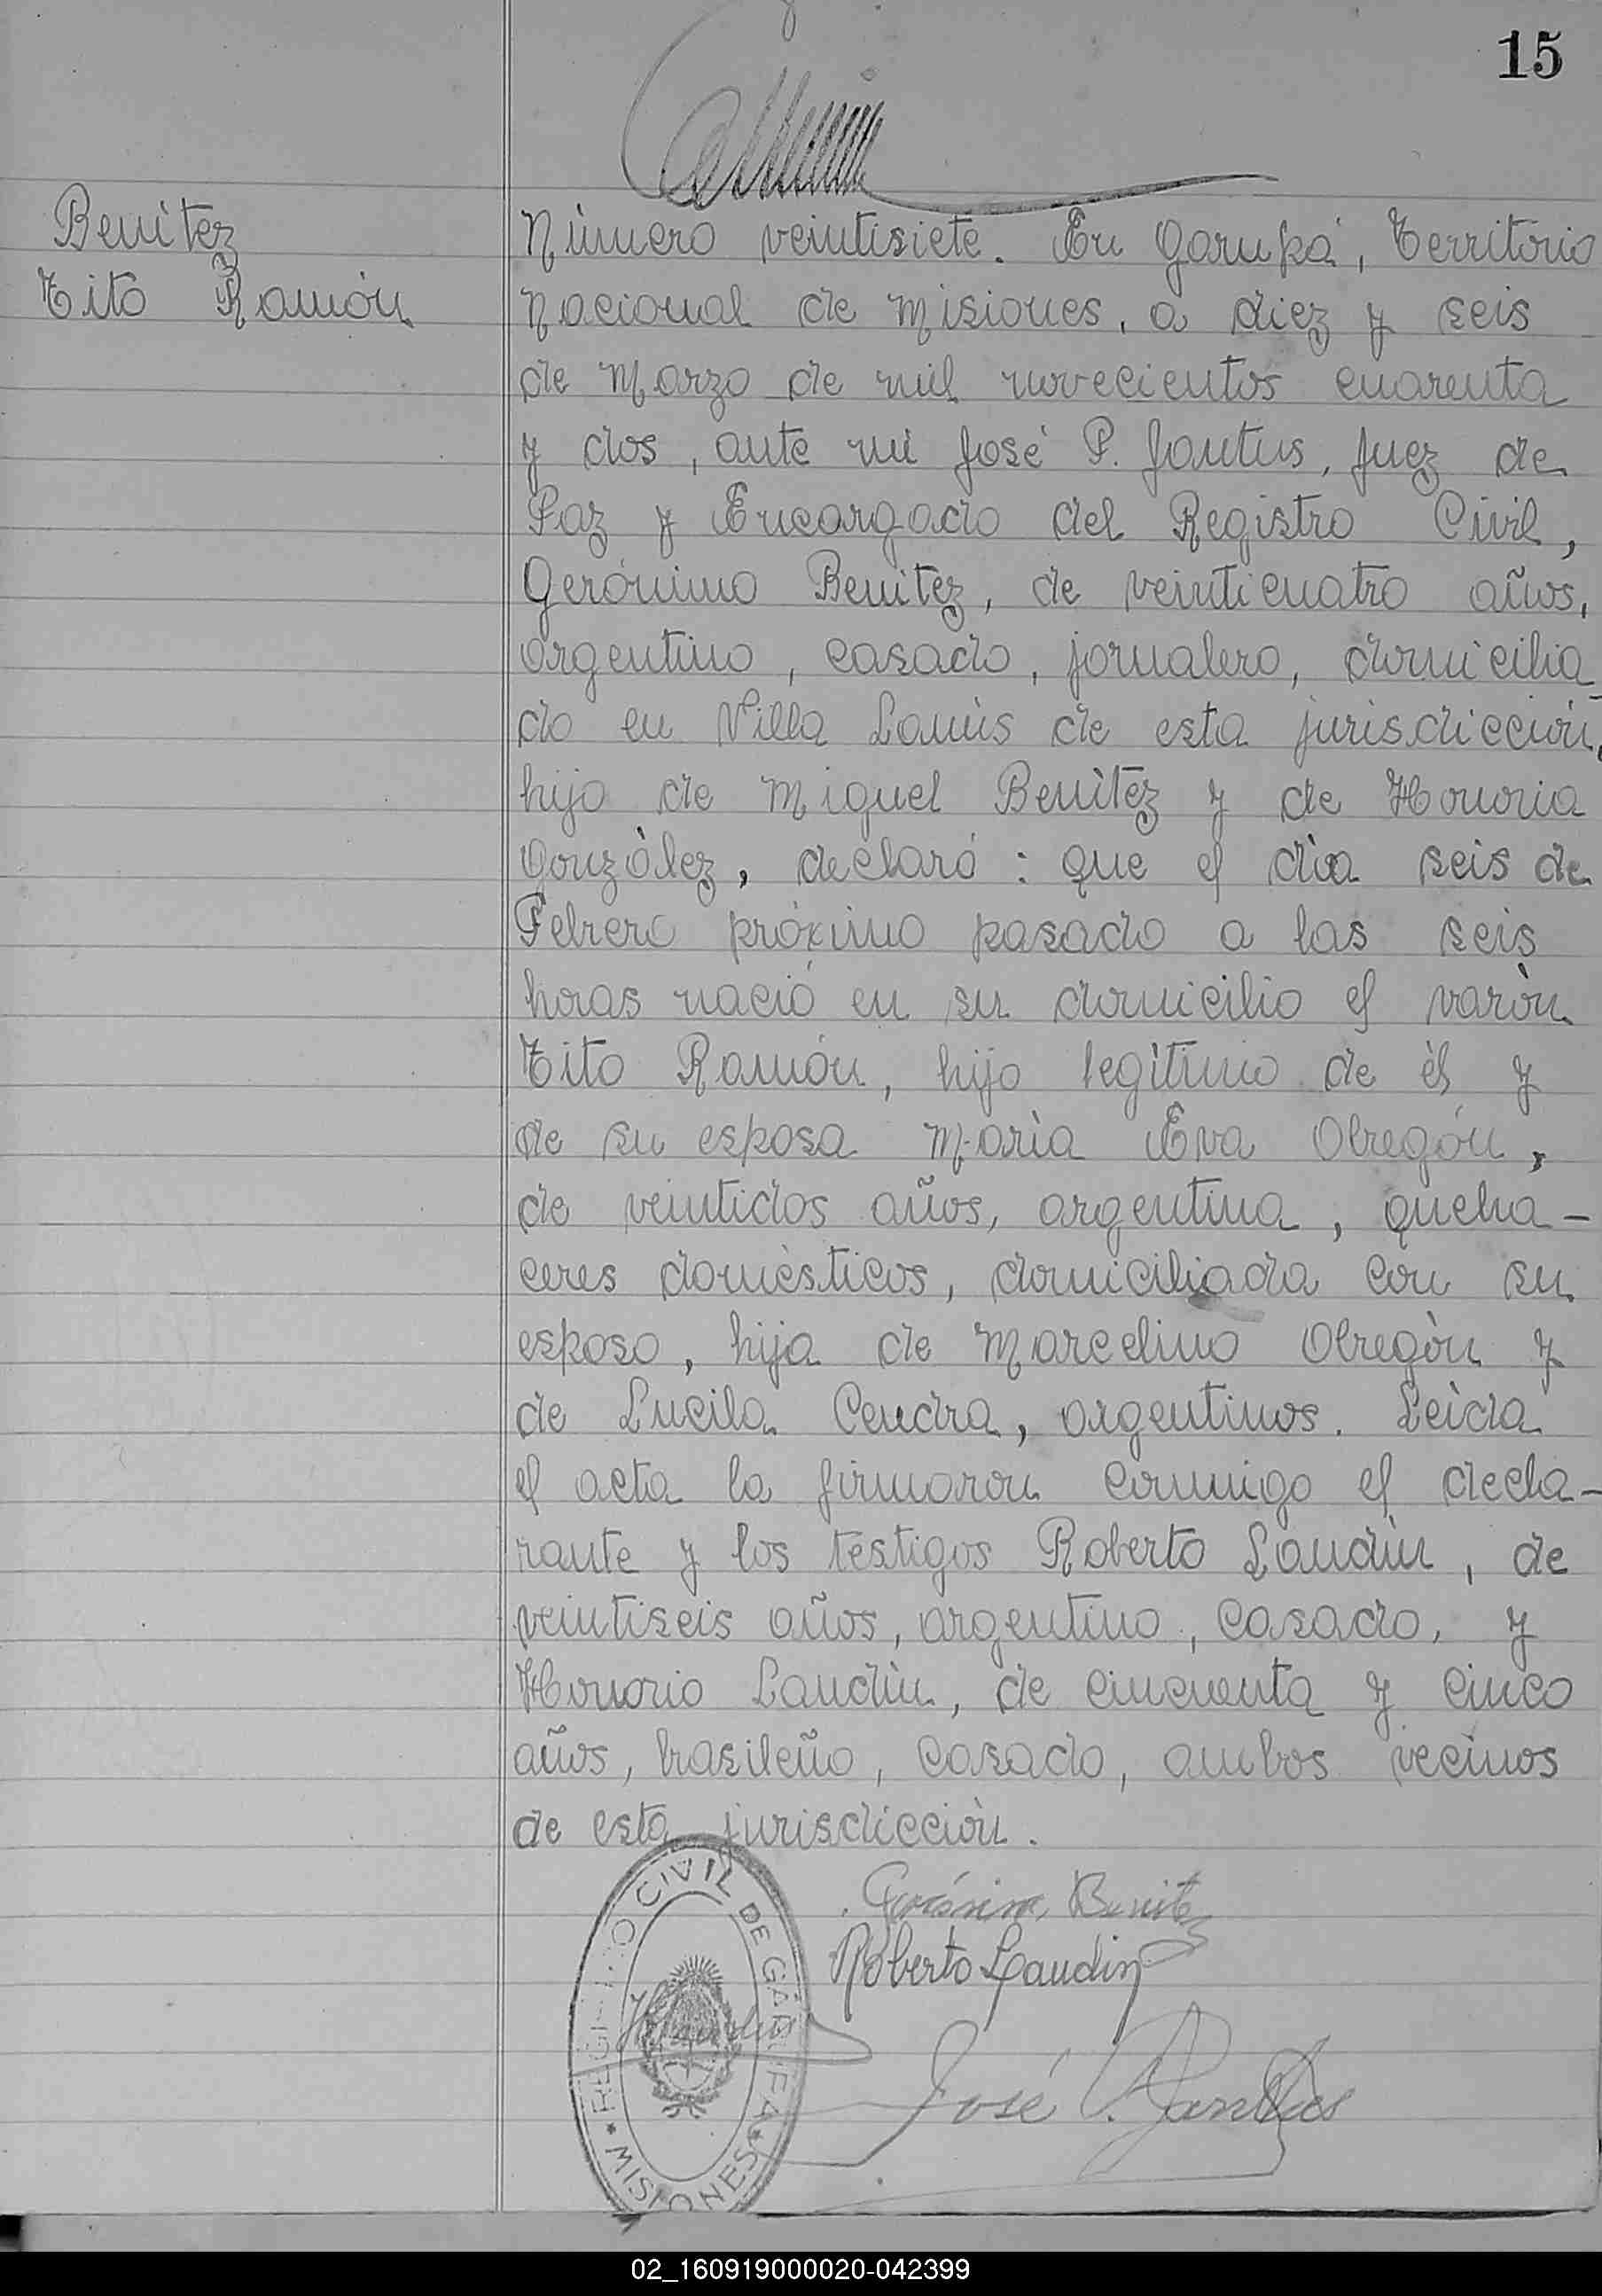 15
Benítez
Tito Ramón
Número veintisiete. En Garupá, Territorio
Nacional de Misiones, a diez y seis
de Marzo de mil novecientos cuarenta
y dos, ante mi José P. Jantus, Juez de
Paz y Encargado del Registro Civil,
Gerónimo Benítez, de veinticuatro años,
argentino, casado, jornalero, domicilia-
do en Villa Lanús de esta jurisdicción,
hijo de Miguel Benítez y de Honoria
González, declaró: que el día seis de
Febrero próximo pasado a las seis
horas nació en su domicilio el varón
Tito Ramón, hijo legítimo de él y
de su esposa María Eva Obregón,
de veintidos años, argentina, queha-
ceres domésticos, domiciliada con su
esposo, hija de Marcelino Obregón y
de Lucila Cendra, argentinos. Leída
el acta la firmaron conmigo el decla-
rante y los testigos Roberto Landín, de
veintiseis años, argentino, casado, y
Honorio Landín, de cincuenta y cinco
años, brasileño, casado, ambos vecinos
de esta jurisdicción.
Gerónimo Benitez
Roberto Landin
José P. Jantus
REGISTRO CIVIL DE GARUPA * MISIONES *
02_160919000020-042399